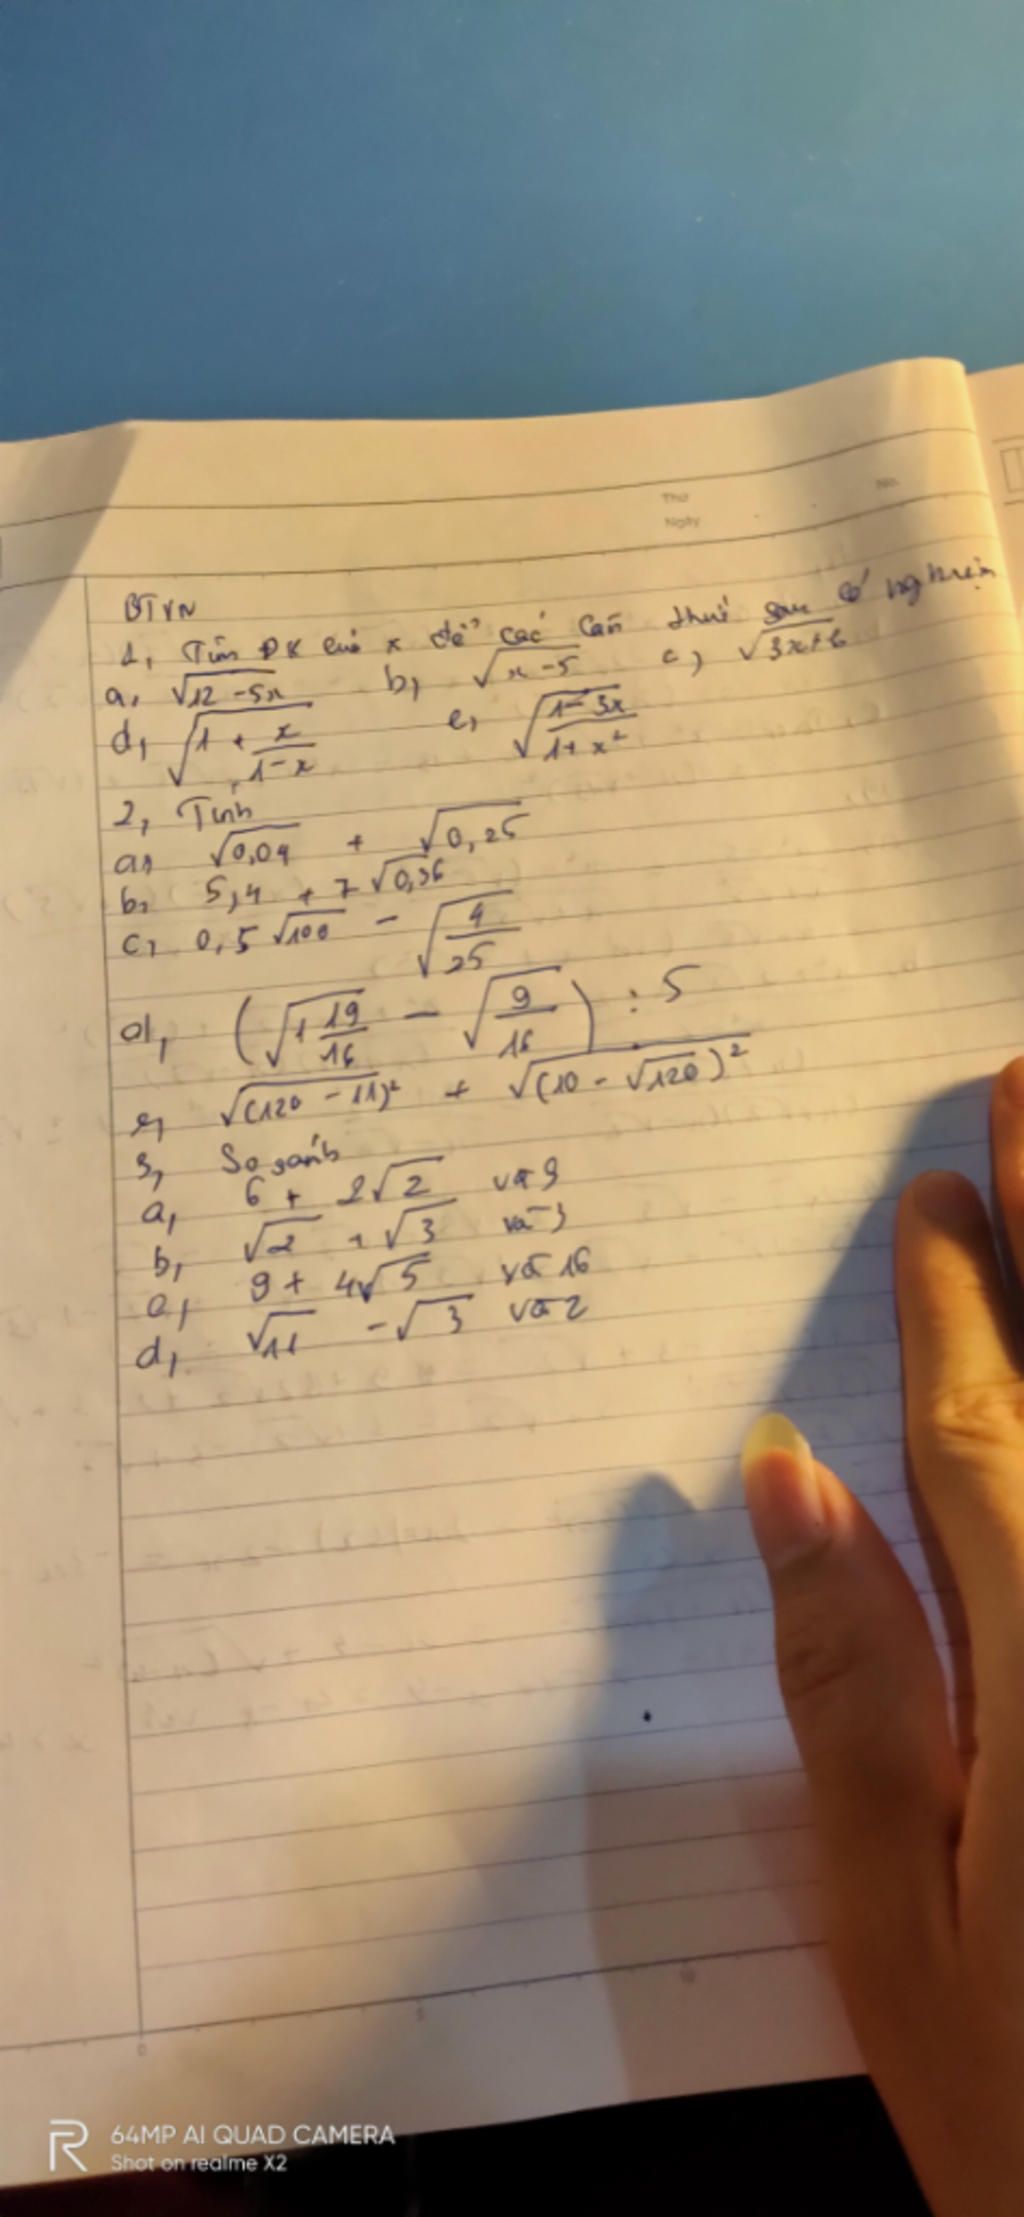 Thứ No.
Ngày
BTVN
1, Tìm ĐK của x để các căn thức sau có nghĩa
a, √(12-5x) b, √(x-5) c, √(3x+6)
d, √(1 + x/(1-x)) e, √((1-3x)/(1+x²))
2, Tính
a, √0,04 + √0,25
b, 5,4 + 7√0,36
c, 0,5√100 - √(4/25)
d, (√(1 19/16) - √(9/16)) : 5
e, √(120-11)² + √(10-√120)²
3, So sánh
a, 6 + 2√2 và 9
b, √2 + √3 và 3
c, 9 + 4√5 và 16
d, √11 - √3 và 2
0 5 10
R 64MP AI QUAD CAMERA
Shot on realme X2